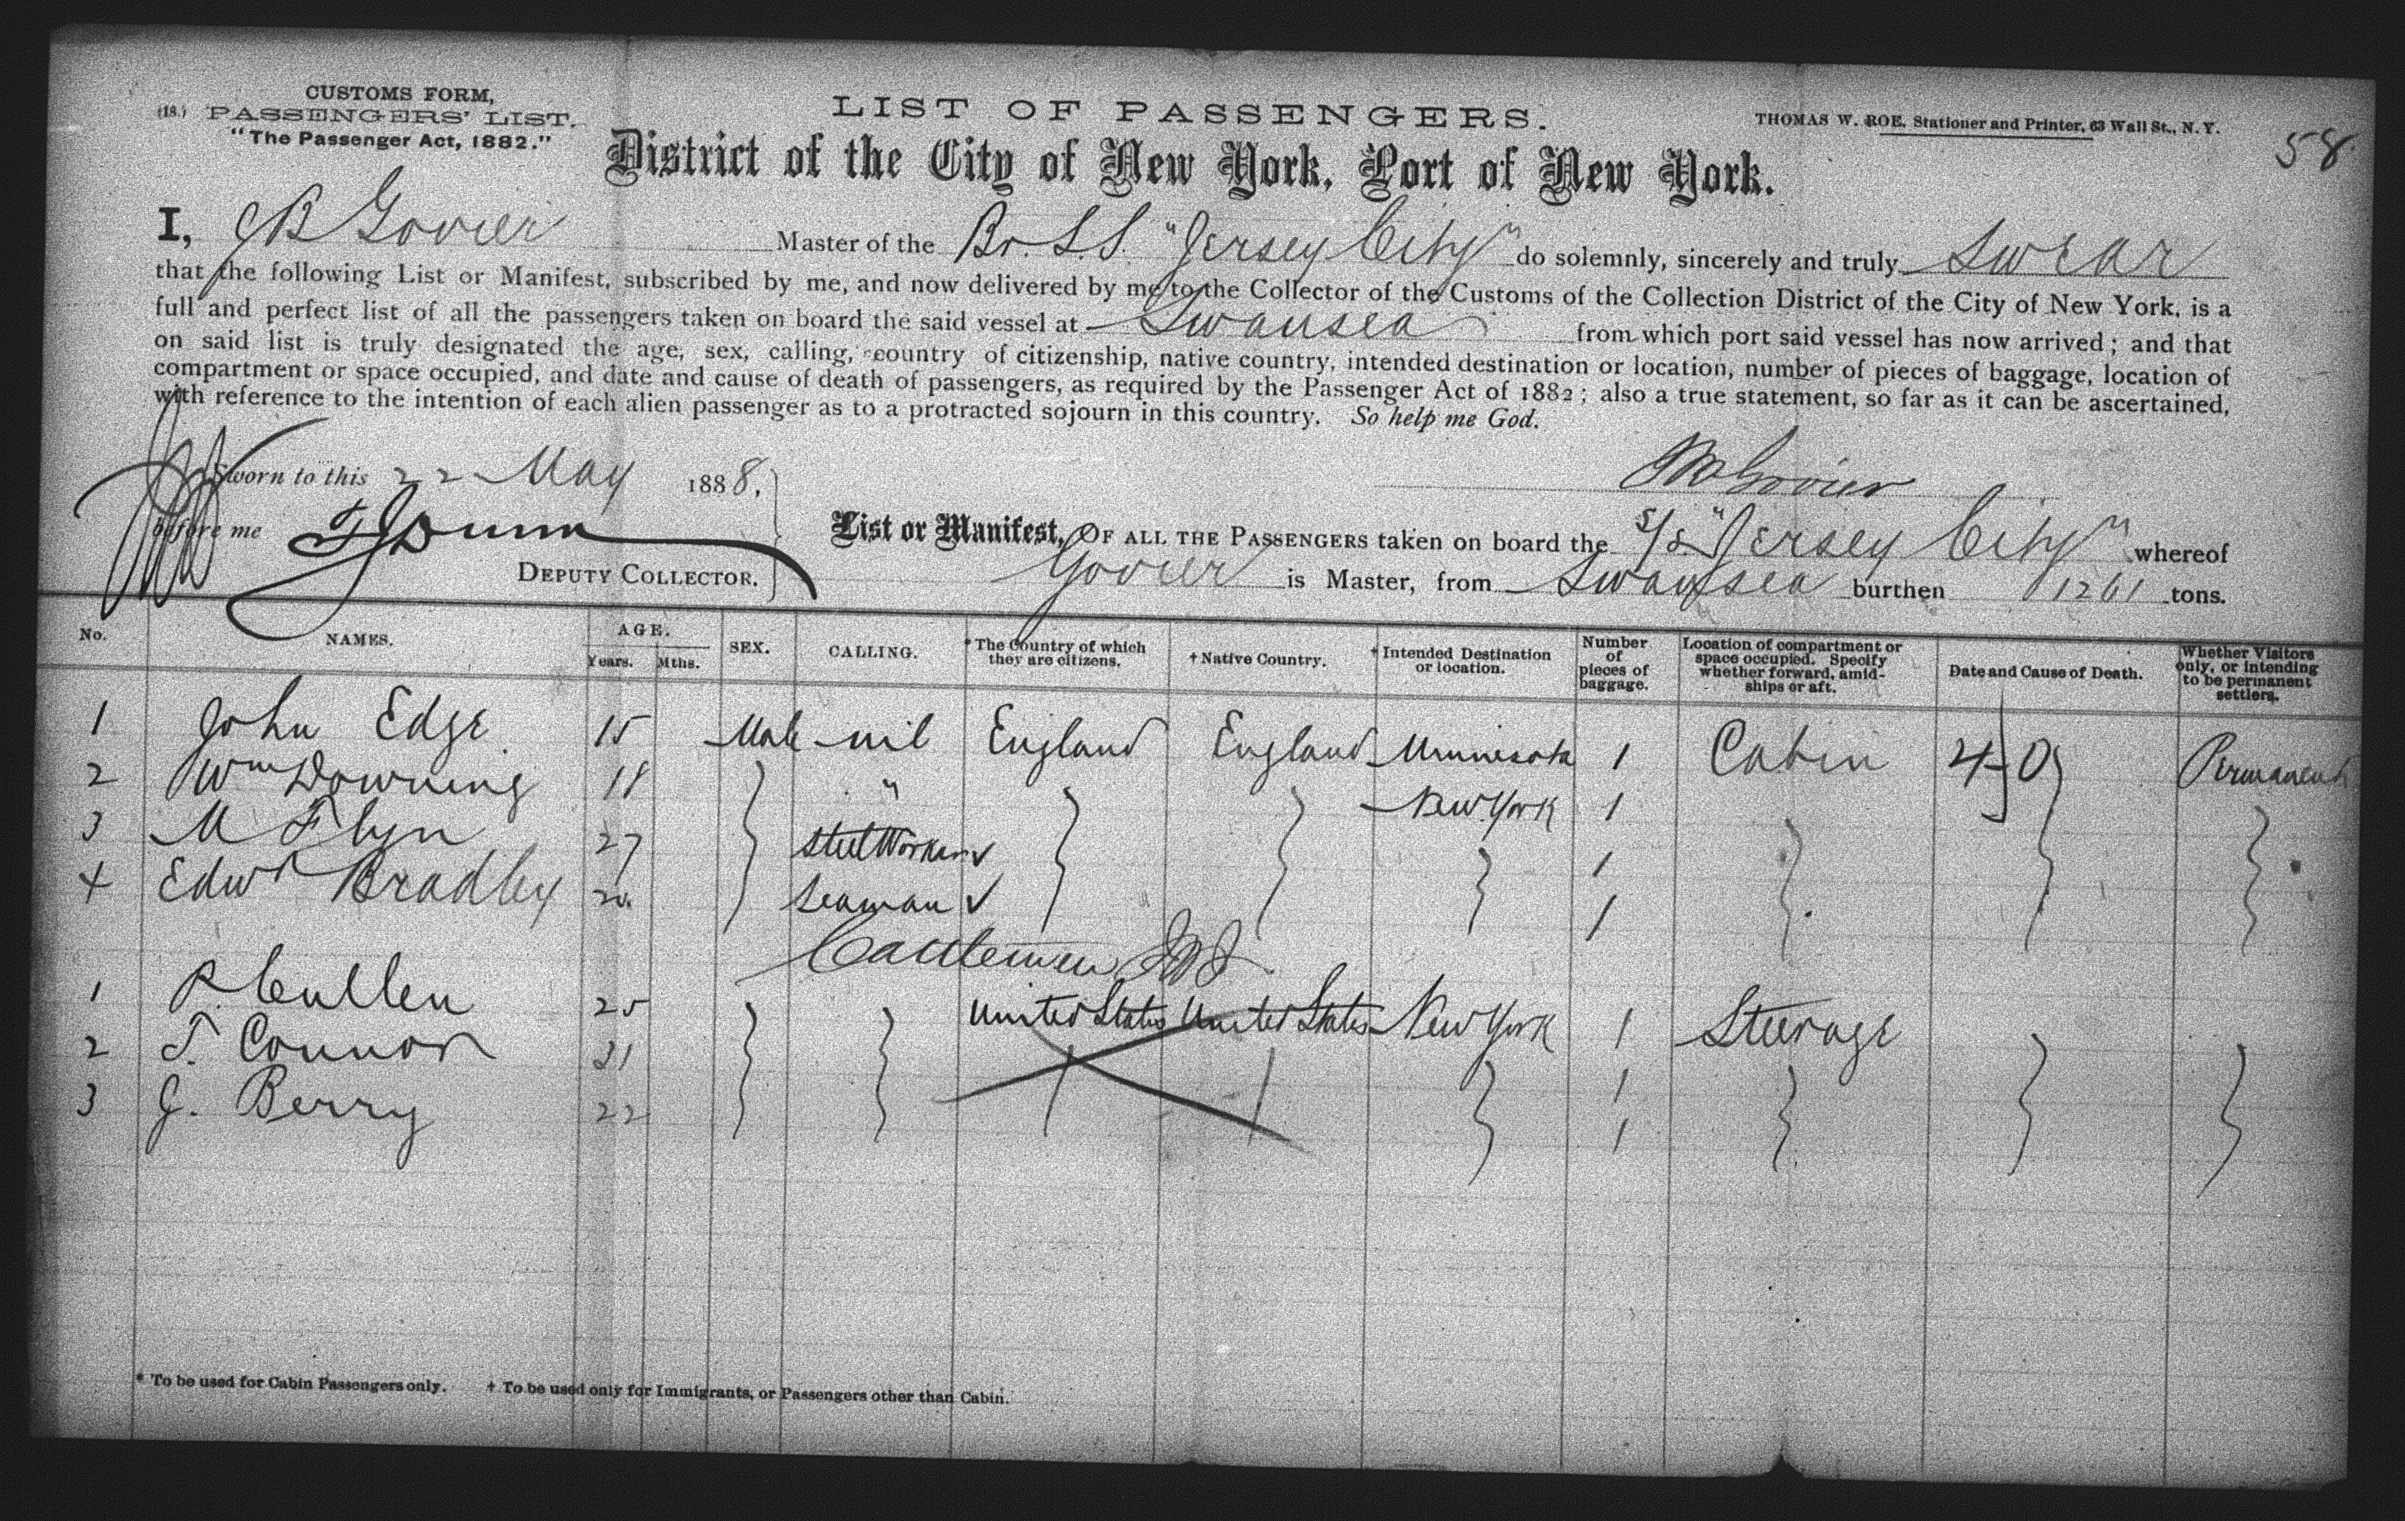 CUSTOMS FORM,
(18.) PASSENGERS' LIST.
"The Passenger Act, 1882."
LIST OF PASSENGERS.
THOMAS W. ROE, Stationer and Printer, 63 Wall St., N. Y.
58
District of the City of New York, Port of New York.
I, JB Govier Master of the Br. S.S. "Jersey City" do solemnly, sincerely and truly swear
that the following List or Manifest, subscribed by me, and now delivered by me to the Collector of the Customs of the Collection District of the City of New York, is a
full and perfect list of all the passengers taken on board the said vessel at Swansea from which port said vessel has now arrived; and that
on said list is truly designated the age, sex, calling, country of citizenship, native country, intended destination or location, number of pieces of baggage, location of
compartment or space occupied, and date and cause of death of passengers, as required by the Passenger Act of 1882; also a true statement, so far as it can be ascertained,
with reference to the intention of each alien passenger as to a protracted sojourn in this country. So help me God.
Sworn to this 22 May 1888,
Govier
before me
DEPUTY COLLECTOR.
List or Manifest, OF ALL THE PASSENGERS taken on board the S/S "Jersey City" whereof
Govier is Master, from Swansea burthen 1261 tons.
No. NAMES. AGE. Years. Mths. SEX. CALLING. * The Country of which they are citizens. † Native Country. † Intended Destination or location. Number of pieces of baggage. Location of compartment or space occupied. Specify whether forward, amidships or aft. Date and Cause of Death. Whether Visitors only, or intending to be permanent settlers.
1 John Edge 15 Male nil England England Minnesota 1 Cabin 4-0 Permanent
2 Wm Downing 18 " New York 1
3 M Flyn 27 Steel Worker ✓ 1
4 Edwd Bradley 20. Seaman ✓ 1
Cattlemen
1 P. Cullen 25 United States United States New York 1 Steerage
2 T. Connor 31 1
3 J. Berry 22 1
* To be used for Cabin Passengers only. † To be used only for Immigrants, or Passengers other than Cabin.